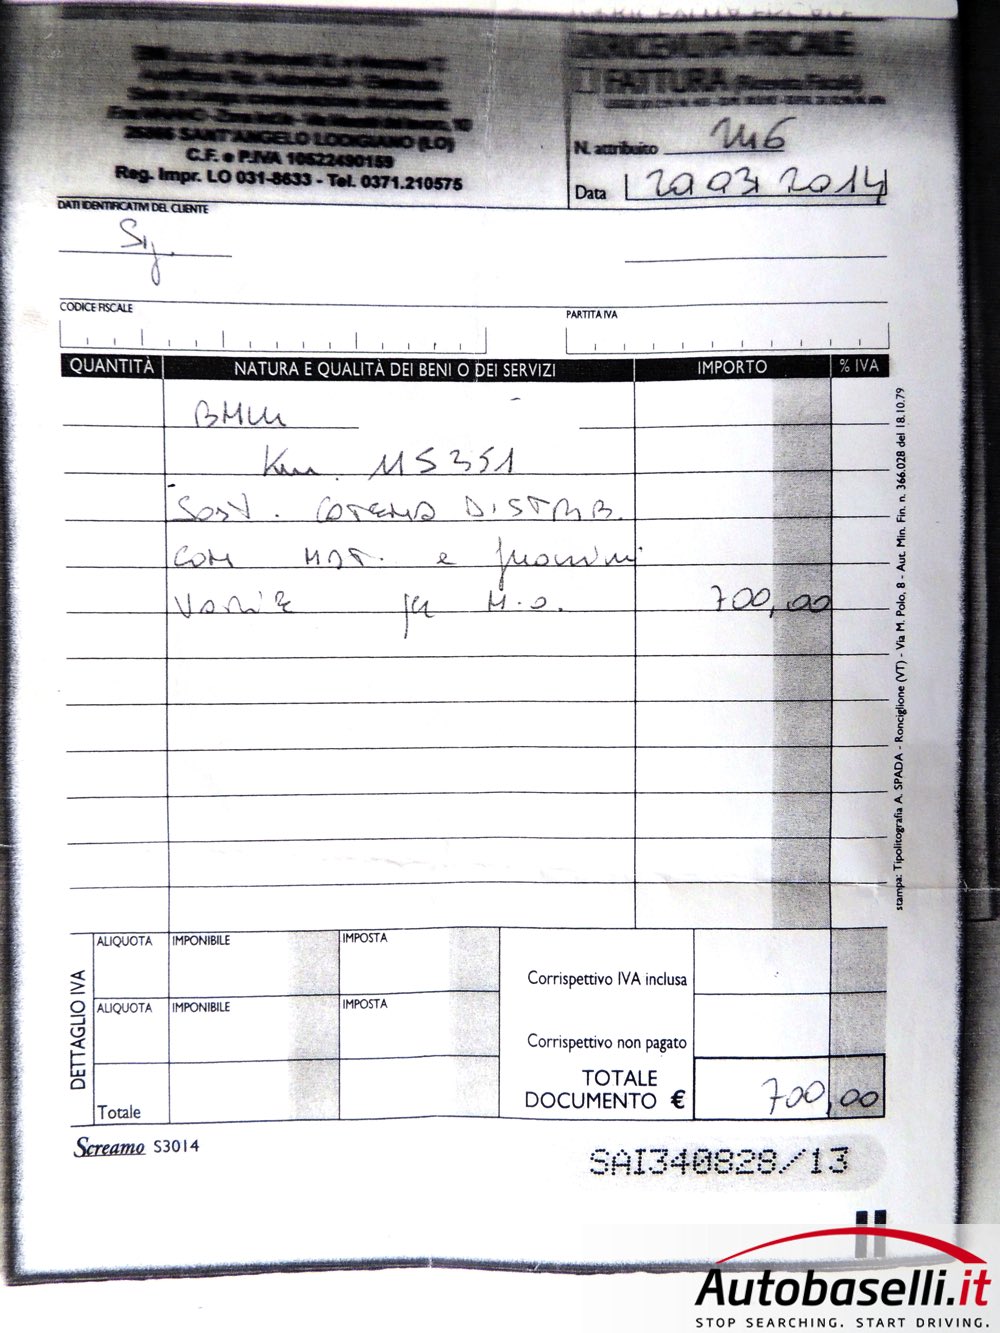 RICEVUTA FISCALE
FATTURA (Ricevuta Fiscale)
26866 SANT'ANGELO LODIGIANO (LO)
C.F. e P.IVA 10522490159
Reg. Impr. LO 031-8633 - Tel. 0371.210575
N. attribuito
Data 20 03 2014
DATI IDENTIFICATIVI DEL CLIENTE
Sig.
CODICE FISCALE
PARTITA IVA
QUANTITÀ NATURA E QUALITÀ DEI BENI O DEI SERVIZI IMPORTO % IVA
BMW
Km. 115351
Sost. CATENA DISTRIB.
CON MAT. e
varie per M.O. 700,00
stampa: Tipolitografia A. SPADA - Ronciglione (VT) - Via M. Polo, 8 - Aut. Min. Fin. n. 366.028 del 18.10.79
DETTAGLIO IVA
ALIQUOTA IMPONIBILE IMPOSTA
Corrispettivo IVA inclusa
ALIQUOTA IMPONIBILE IMPOSTA
Corrispettivo non pagato
Totale
TOTALE
DOCUMENTO € 700,00
Screamo S3014
SAI340828/13
Autobaselli.it
STOP SEARCHING. START DRIVING.